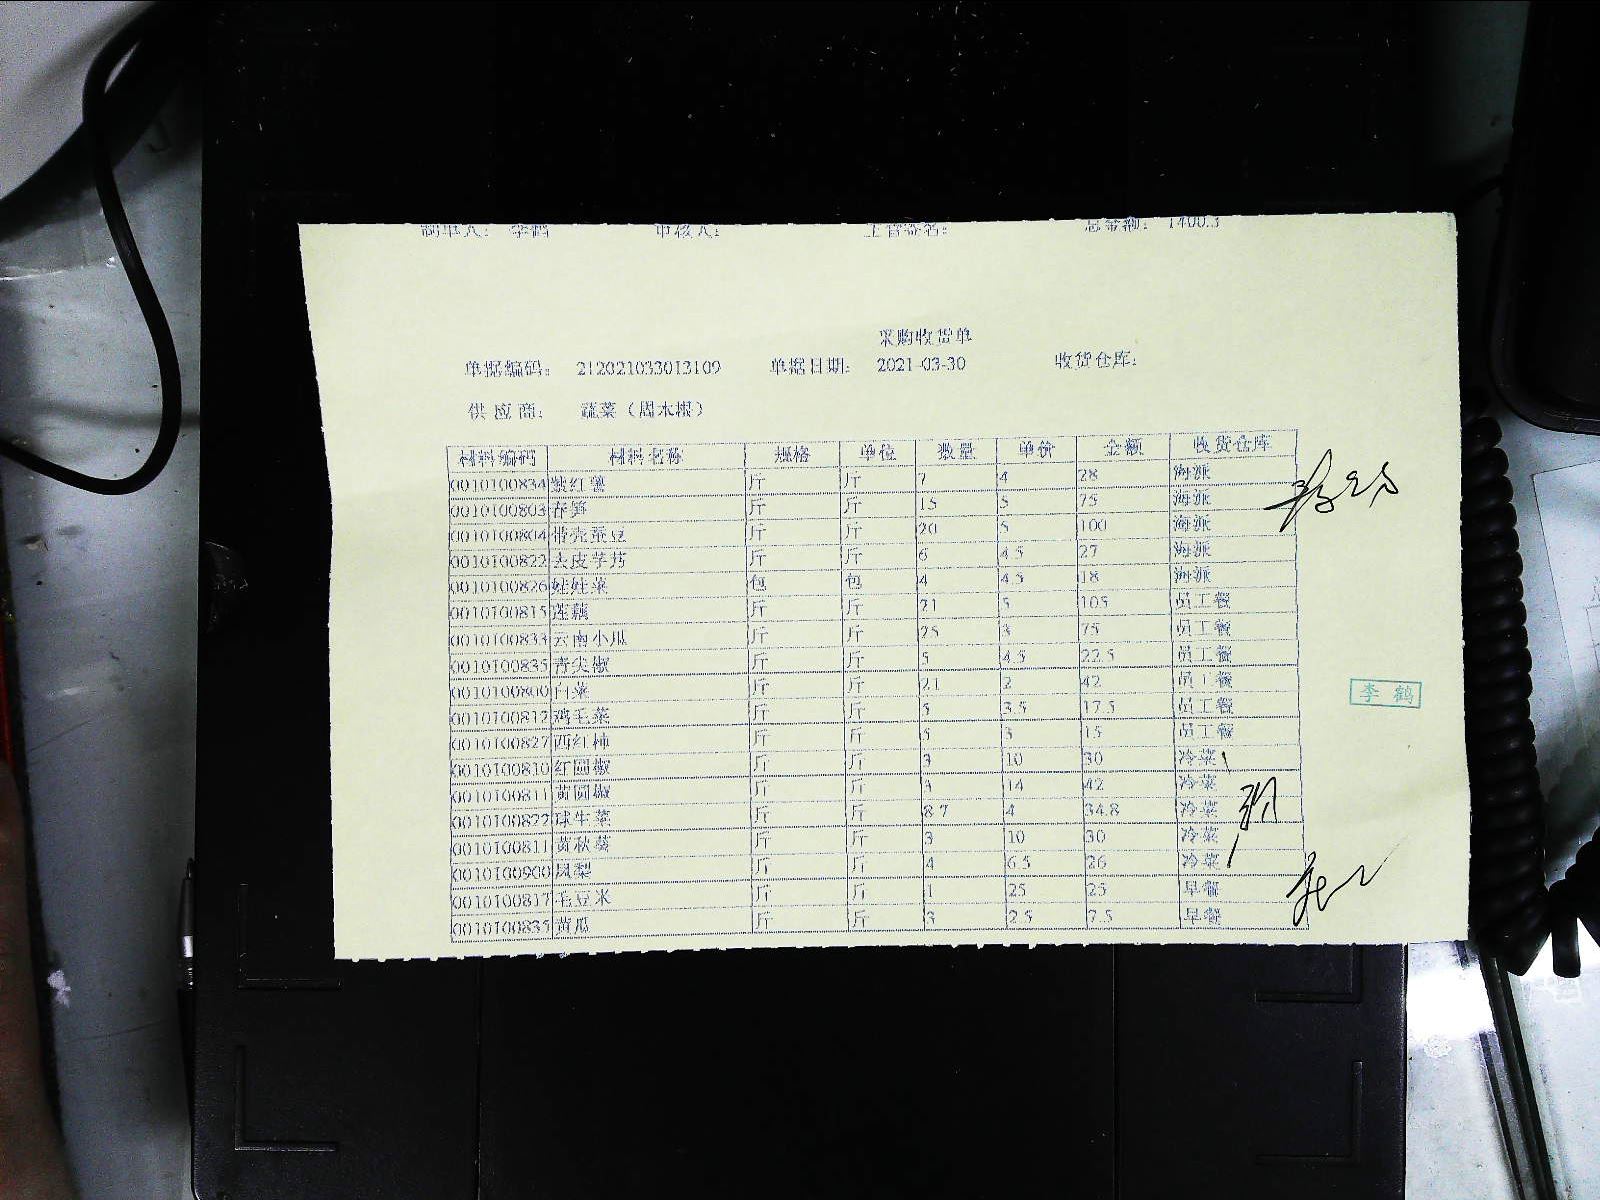 制单人: 李鹤 审核人: 主管签名: 总金额: 1400.3
采购收货单
单据编码: 212021033013109 单据日期: 2021-03-30 收货仓库:
供应商: 蔬菜(周木根)
材料编码 材料名称 规格 单位 数量 单价 金额 收货仓库
0010100834 紫红薯 斤 斤 7 4 28 海派
0010100803 春笋 斤 斤 15 5 75 海派
0010100804 带壳蚕豆 斤 斤 20 5 100 海派
0010100822 去皮芋艿 斤 斤 6 4.5 27 海派
0010100826 娃娃菜 包 包 4 4.5 18 海派
0010100815 莲藕 斤 斤 21 5 105 员工餐
0010100833 云南小瓜 斤 斤 25 3 75 员工餐
0010100835 青尖椒 斤 斤 5 4.5 22.5 员工餐
0010100800 白菜 斤 斤 21 2 42 员工餐
0010100812 鸡毛菜 斤 斤 5 3.5 17.5 员工餐
0010100827 西红柿 斤 斤 5 3 15 员工餐
0010100810 红圆椒 斤 斤 3 10 30 冷菜
0010100811 黄圆椒 斤 斤 3 14 42 冷菜
0010100822 球生菜 斤 斤 8.7 4 34.8 冷菜
0010100811 黄秋葵 斤 斤 3 10 30 冷菜
0010100900 凤梨 斤 斤 4 6.5 26 冷菜
0010100817 毛豆米 斤 斤 1 25 25 早餐
0010100835 黄瓜 斤 斤 3 2.5 7.5 早餐
李鹤